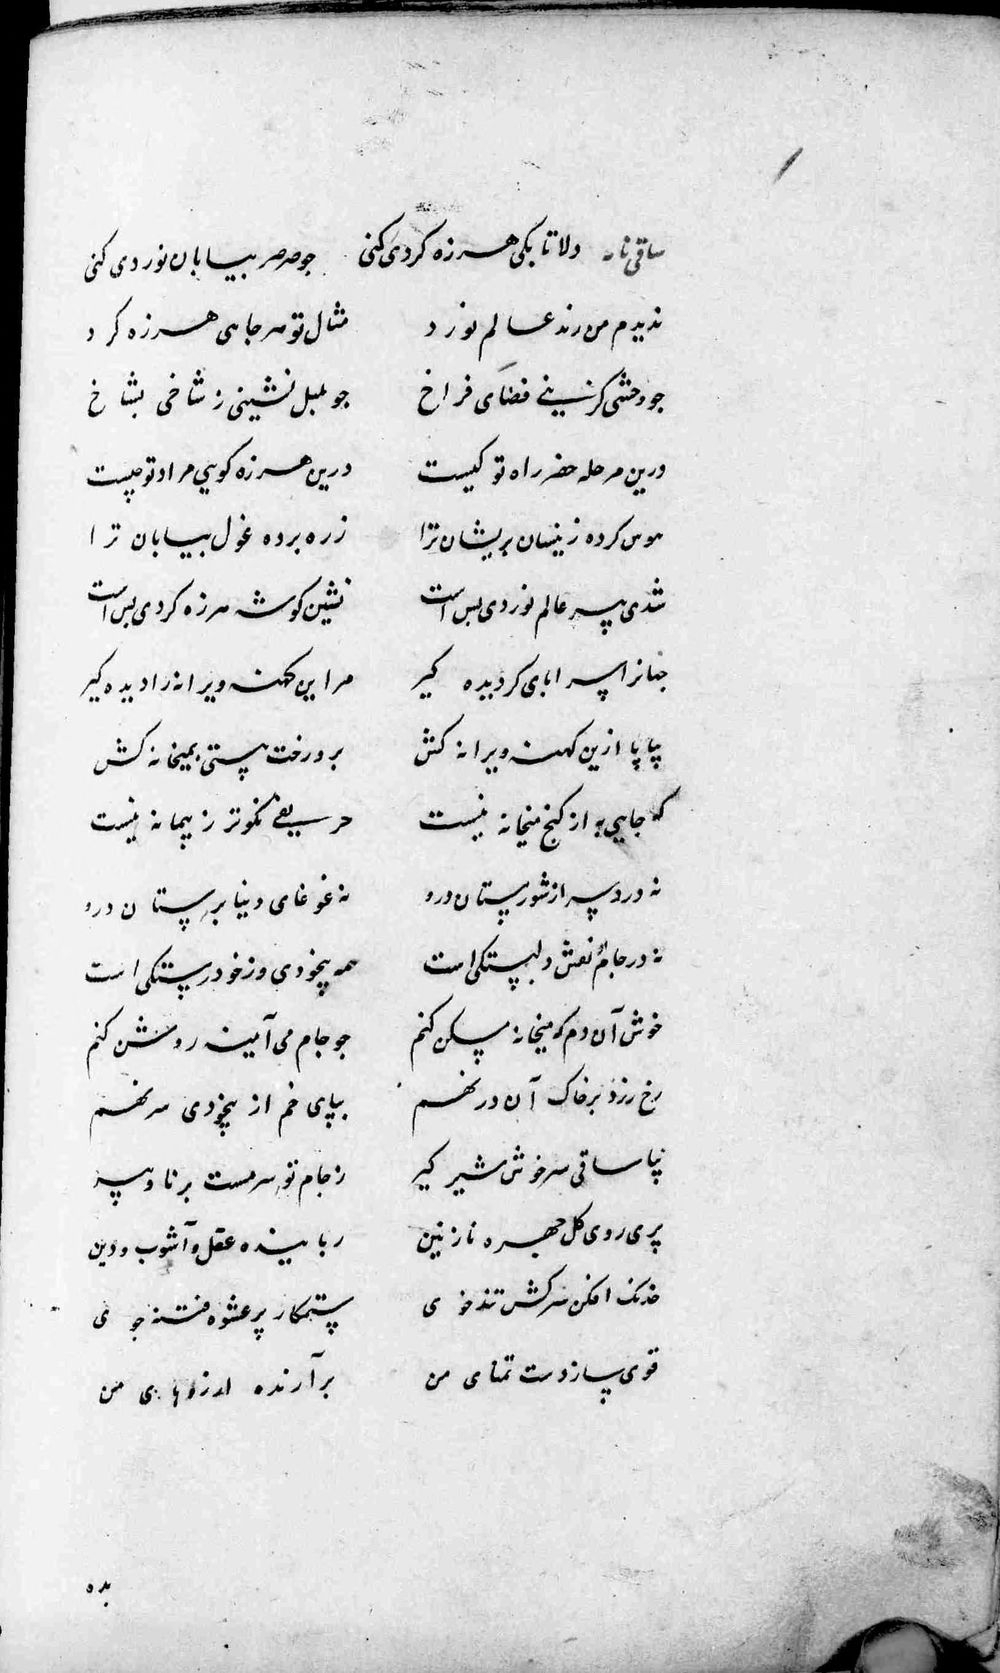 ساقی نامه دلا تا بکی هرزه کردی کنی جو صرصر بیابان نوردی کنی
ندیدم من رند عالم نورد مثال تو هر جاهی هرزه کرد
جو وحشی کزینی فضای فراخ جو بلبل نشینی ز شاخی بشاخ
درین مرحله خضر راه تو کیست درین هرزه کویی مراد تو چیست
هوس کرده زینسان پریشان ترا ز ره برده غول بیابان ترا
شدی پیر عالم نوردی بس است نشین کوشه هرزه کردی بس است
جهانرا سراپای کردیده کیر مر این کهنه ویرانه را دیده کیر
بیا پا ازین کهنه ویرانه کش برو رخت هستی بمیخانه کش
که جایی به از کنج میخانه نیست حریفی نکوتر ز پیمانه نیست
نه درد سر از شور مستان درو نه غوغای دنیا پرستان درو
نه در جام نقش دلبستکی است همه بیخودی وز خود رستکی است
خوش آن دم که میخانه مسکن کنم جو جام می آیینه روشن کنم
رخ زرد بر خاک آن در نهم بپای خم از بیخودی سر نهم
بیا ساقی سرخوش شیر کیر ز جام تو سرمست برنا و پیر
پری روی کل چهره نازنین رباینده عقل و آشوب دین
خدنک افکن سرکش تندخوی ستمکار پر عشوه فتنه جوی
قوی ساز دست تمنای من برآرنده آرزوهای من
بده